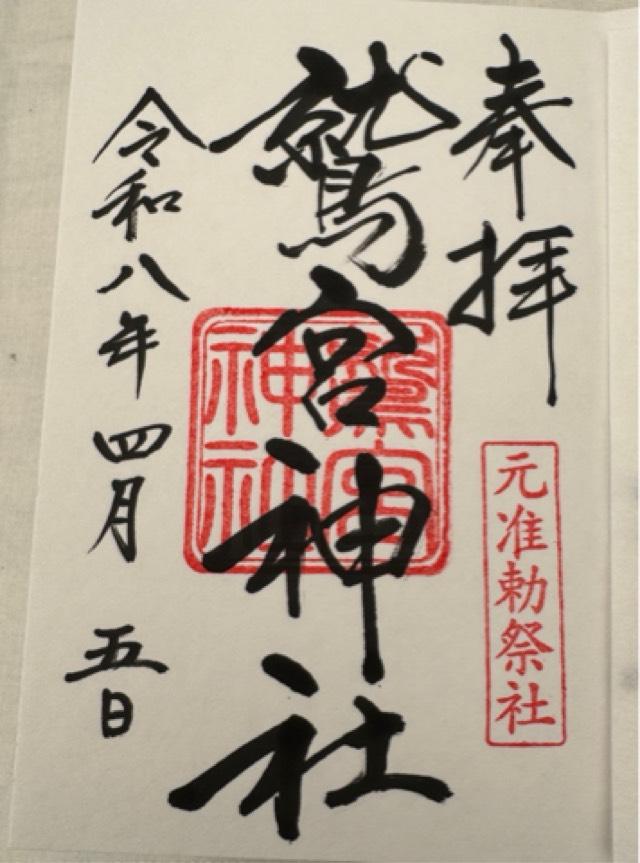 奉拝
元准勅祭社
鷲宮神社
鷲宮神社
令和八年四月五日